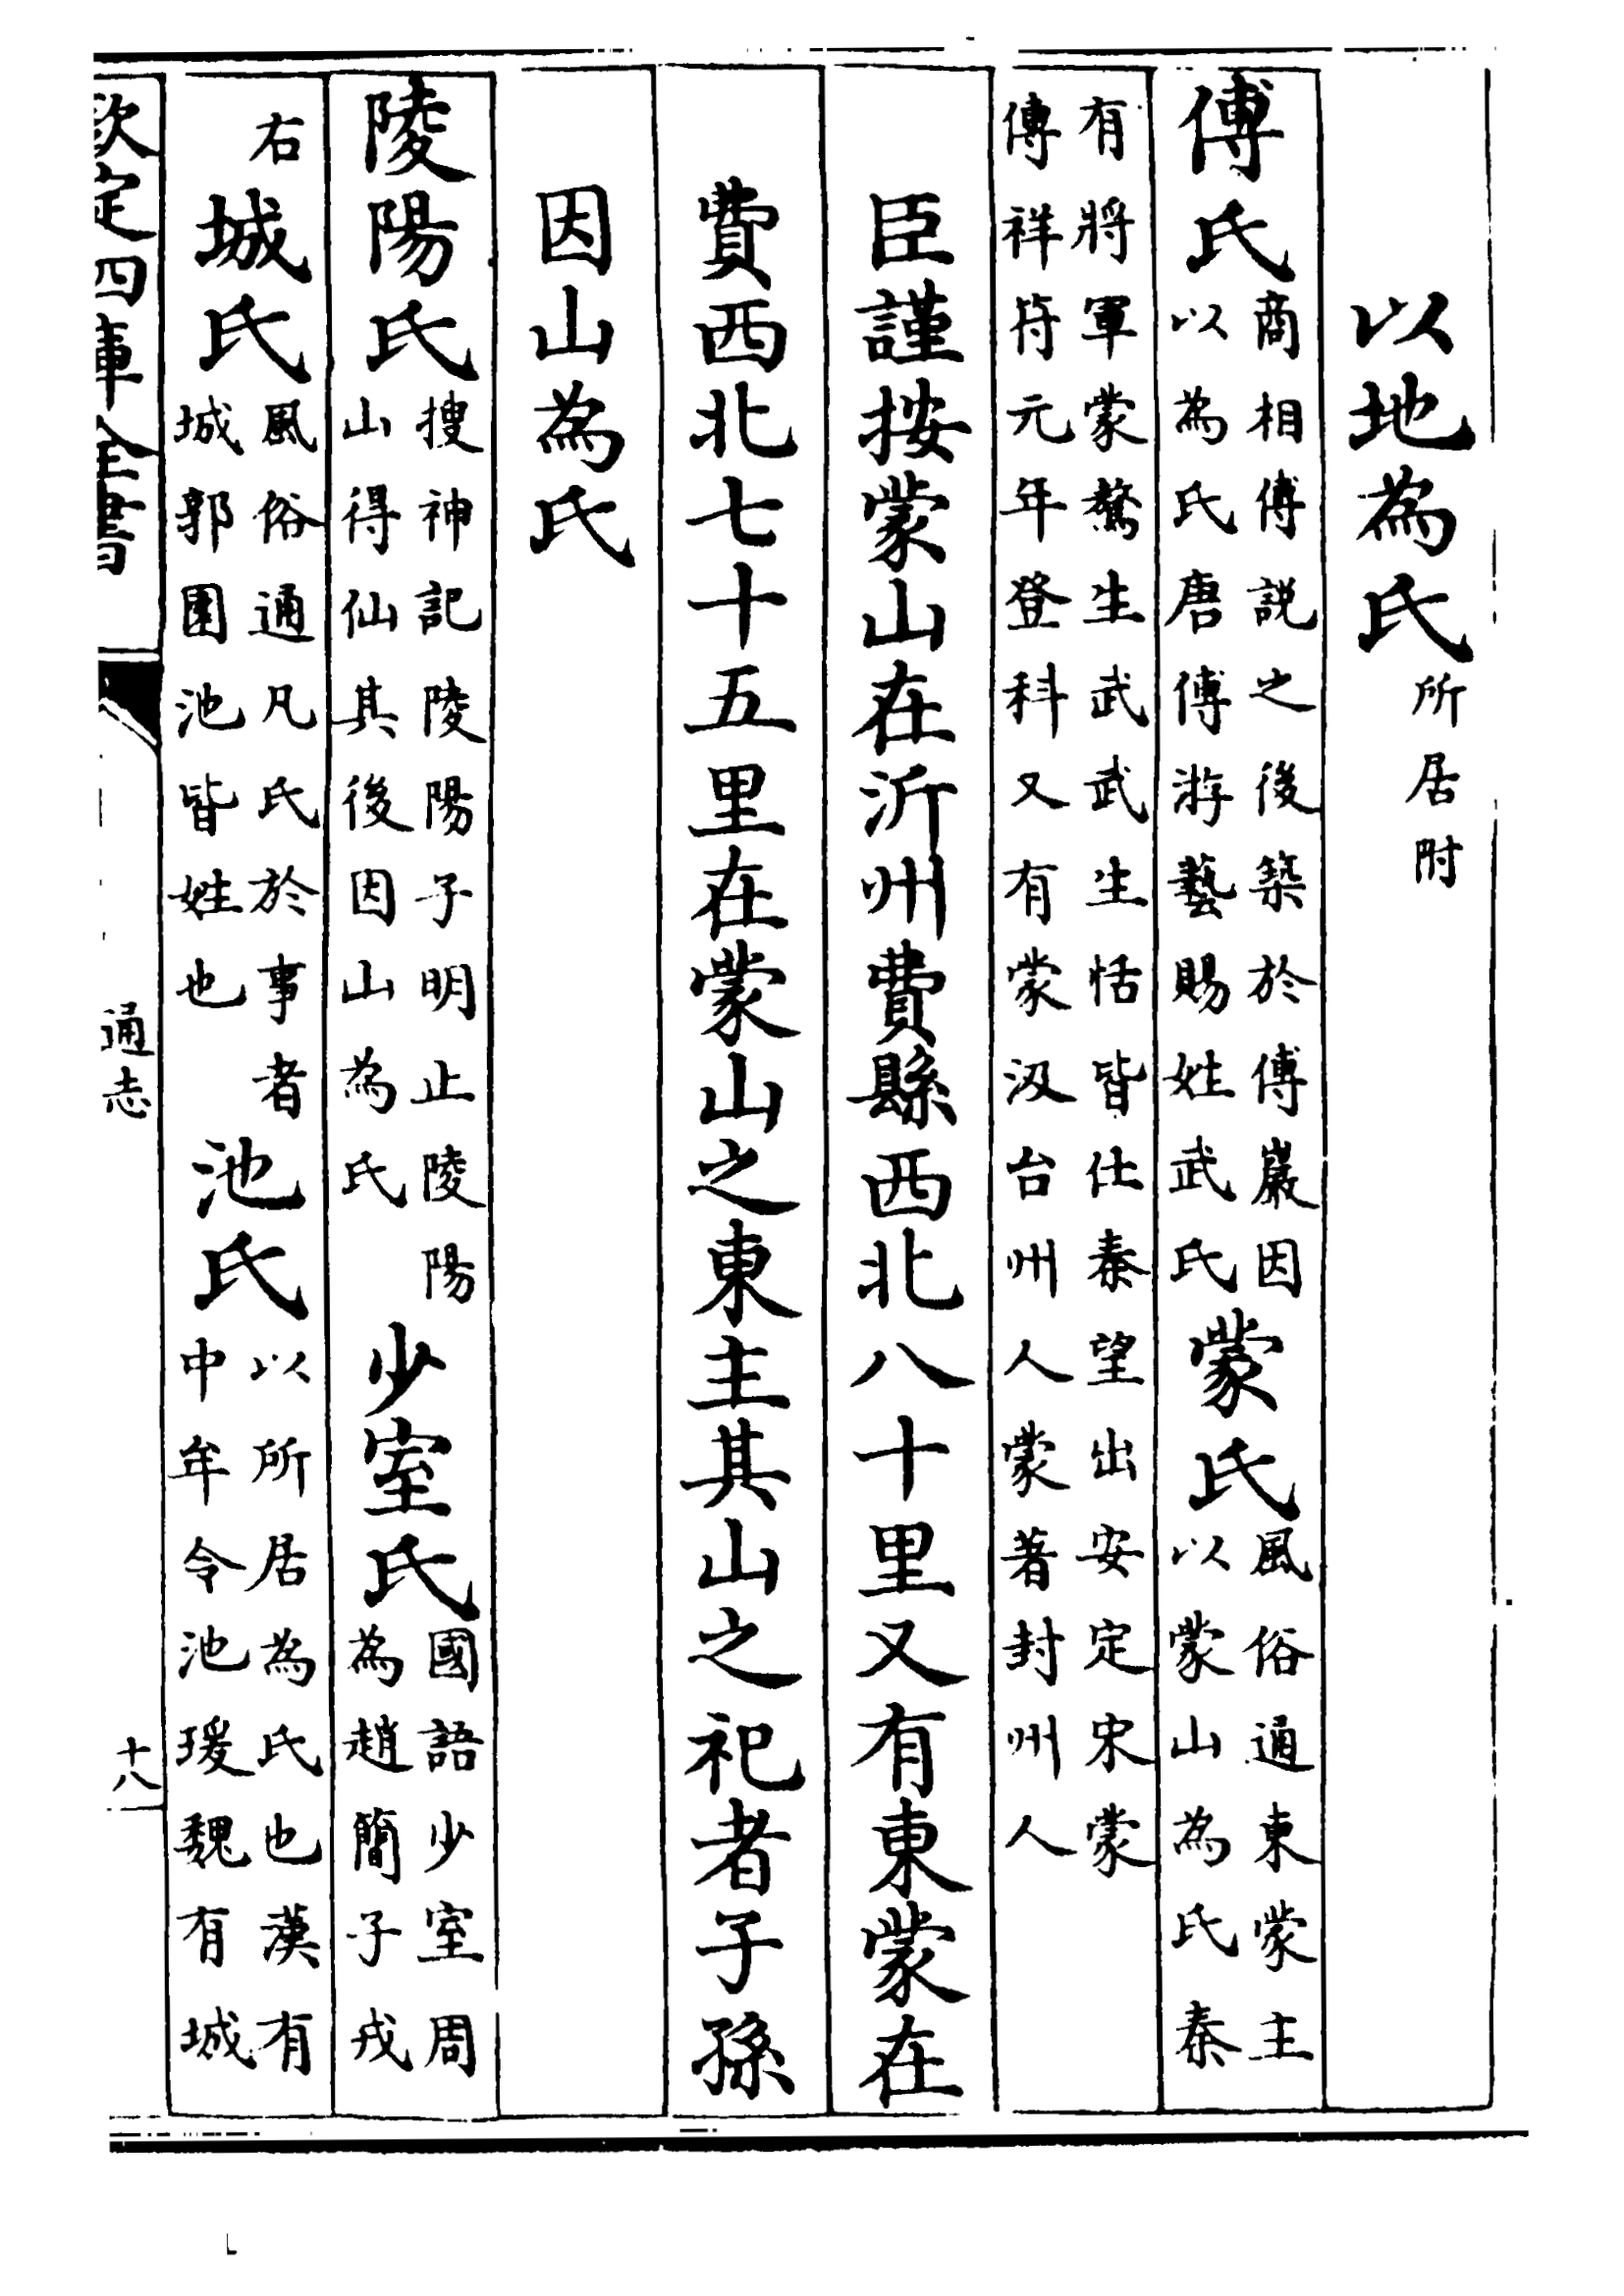 以地為氏所居附
傅氏
商相傅説之後築於傅巖因
以為氏唐傅游藝賜姓武氏
蒙氏
風俗通東蒙主
以蒙山為氏秦
有將軍蒙驁生武武生恬皆仕秦望出安定宋蒙
傳祥符元年登科又有蒙汲台州人蒙著封州人
臣謹按蒙山在沂州費縣西北八十里又有東蒙在
費西北七十五里在蒙山之東主其山之祀者子孫
因山為氏
陵陽氏
搜神記陵陽子明止陵陽
山得仙其後因山為氏
少室氏
國語少室周
為趙簡子戎
右
城氏
風俗通凡氏於事者
城郭園池皆姓也
池氏
以所居為氏也漢有
中牟令池瑗魏有城
欽定四庫全書
通志
十八